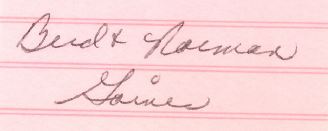 Bud & Norman
Gaines